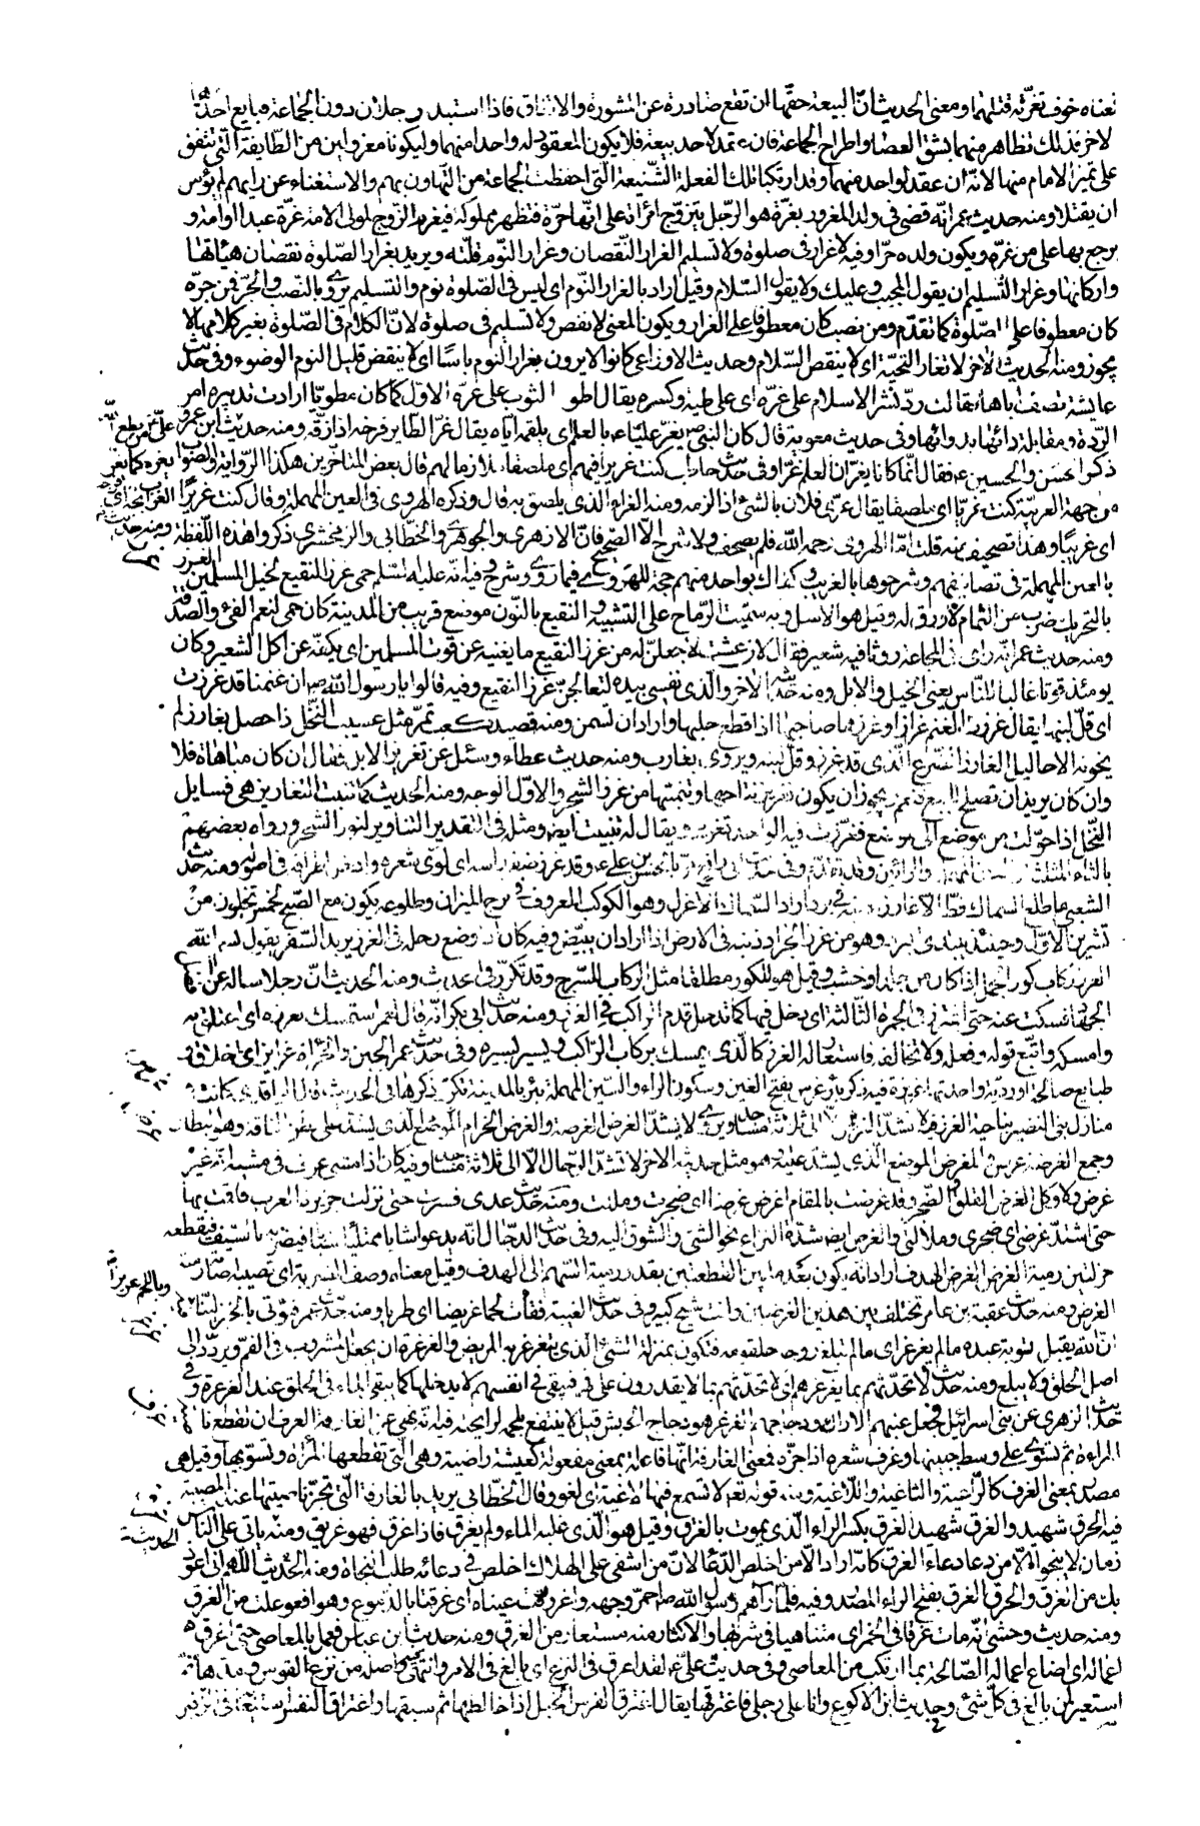 معناه خوف تغرّة قتلهما ومعنى الحديث انّ البيعة حقّها ان تقع صادرة عن المشورة والاتفاق فاذا استبد رجلان دون الجماعة فبايع احدهما
لاخر فذلك تظاهر منهما بشق العصا واطراح الجماعة فان عقد لاحد بيعة فلا يكون المعقود له واحدا منهما وليكونا معزولين من الطّايفة الّتي تتفق
على تميز الامام منها لانّه ان عقد لواحد منهما وقد ارتكبا تلك الفعلة الشّنيعة الّتي احفظت الجماعة من التّهاون بهم والاستغناء عن رايهم لم يؤمن
ان يقتلا ومنه حديث عمر انّه قضى في ولد المغرور بغرّة هو الرّجل يتزوّج امرأة على انّها حرّة فتظهر مملوكة فيغرم الزّوج لمولى الامة غرّة عبدا او امة و
يرجع بها على من غرّه ويكون ولده حرّا وفيه لا غرار في صلوة ولا تسليم الغرار النّقصان وغرار النّوم قلّته ويريد بغرار الصّلوة نقصان هيأتها
واركانها وغرار التّسليم ان يقول المجيب وعليك ولا يقول السّلام وقيل اراد بالغرار النّوم اي ليس في الصّلوة نوم والتّسليم يروى بالنّصب والجرّ فمن جرّه
كان معطوفا على الصّلوة كما تقدّم ومن نصب كان معطوفا على الغرار ويكون المعنى لا نقص ولا تسليم في صلوة لانّ الكلام في الصّلوة بغير كلامها لا
يجوز ومنه الحديث الاخر لا تغار التّحيّة اي لا ينقص السّلام وحديث الاوزاعي كانوا لا يرون بغرار النوم باسًا اي لا ينقض قليل النوم الوضوء وفي حديث
عايشة تصف اباها فقالت ردّ نشر الاسلام على غرّه اي على طيّه وكسره يقال اطو الثوب على غرّه الاوّل كما كان مطويّا ارادت تدبيره امر
الرّدة ومقابلة دائها بدوائها وفي حديث معوية قال كان النبي ص يغرّ عليّا ع بالعلم اي يلقمه اياه يقال غرّ الطّاير فرخه اذا زقّه ومنه حديث ابن عمرو
ذكر الحسن والحسين ع فقال انّما كانا يغرّان العلم غرّا وفي حديث حاطب كنت غريرا فيهم اي ملصقا ملازما لهم قال بعض المتأخرين هكذا الرّواية والصّواب
من جهة العربيّة كنت غريّا اي ملصقا يقال غري فلان بالشئ اذا لزمه ومنه الغراء الّذي يلصق به قال وذكره الهروي في العين المهملة وقال كنت عريرًا
اي غريبًا وهذا تصحيف منه قلت امّا الهروي رحمه الله فلم يصحّف ولا شرح الّا الصّحيح فانّ الازهري والجوهري والخطّابي والزمخشري ذكروا هذه اللّفظة
بالعين المهملة في تصانيفهم وشرحوها بالغريب وكفاك بواحد منهم حجة للهروي فيما روى وشرح وفيه انّه عليه السّلم حمى غرز النّقيع لخيل المسلمين الغرز
بالتحريك ضرب من الثّمام لا ورق له وقيل هو الاسل وبه سمّيت الرّماح على التشبيه و النقيع بالنّون موضع قريب من المدينة كان حمى لنعم الفئ والصّدقة
ومنه حديث عمر انّه راى في المجاعة روثا فيه شعير فقال لان عشت لاجعلنّ له من غرز النّقيع ما يغنيه عن قوت المسلمين اي يكفّه عن اكل الشّعير وكان
يومئذ قوتا غالبا للنّاس يعني الخيل والابل ومنه حديثه الاخر والّذي نفسي بيده لتعالجنّ غرز النّقيع وفيه قالوا يا رسول الله ص ان غنمنا قد غرزت
اي قلّ لبنها يقال غرزت الغنم غرازا وغرّزها صاحبها اذا قطع حلبها واراد ان تسمن ومنه قصيد كعب تمرّ مثل عسيب النّخل ذا خصل بغارز لم
تخوّنه الاحاليل الغارز الضّرع الّذي قد غرز وقلّ لبنه ويروى بغارب ومنه حديث عطاء وسئل عن تغريز الابل فقال ان كان مباهاة فلا
وان كان يريد ان تصلح للبيع فنعم يجوز ان يكون تغريزها نتاجها وتنميتها من غرز الشّجر والاوّل الوجه ومنه الحديث كما تنبت التغاريز هي فسايل
النّخل اذا حوّلت من موضع الى موضع فغرّزت فيه الواحد تغريز ويقال له تنبيت ايضا ومثله في التقدير التّناوير لنور الشّجر ورواه بعضهم
الشعبي ما طلع السماك قطّ الّا غارزا ذنبه في برد اراد السّماك الاعزل وهو الكوكب المعروف في برج الميزان وطلوعه يكون مع الصّبح لخمس تخلون من
تشرين الاوّل وحينئذ يبتدئ البرد وهو من غرز الجراد ذنبه في الارض اذا اراد ان يبيض وفيه كان اذا وضع رجله في الغرز يريد السّفر يقول بسم الله
الغرز ركاب كور الجمل اذا كان من جلد او خشب وقيل هو للكور مطلقا مثل الرّكاب للسّرج وقد تكرّر في الحديث ومنه الحديث انّ رجلا ساله عن افضل
الجهاد فسكت عنه حتى اغترز في الجمرة الثّالثة اي دخل فيها كما تدخل قدم الرّاكب في الغرز ومنه حديث ابي بكر انّه قال لعمر استمسك بغرزه اي اعتلق به
وامسكه واتّبع قوله وفعله ولا تخالفه فاستعار له الغرز كالّذي يمسك بركاب الرّاكب ويسير بسيره وفي حديث عمر الجبن والجرأة غرايز اي اخلاق و
طبايع صالحة او رديّة واحدتها غريزة فيه ذكر بئر غرس بفتح الغين وسكون الراء والسّين المهملة بئر بالمدينة تكرّر ذكرها في الحديث قال الواقدي كانت
منازل بني النضير بناحية الغرس فيه لا تشدّ الغرض الّا الى ثلثة مساجد ويروى لا يشدّ الغرض الغرضة والغرض الحزام الّذي يشدّ على بطن النّاقة وهو البطان
وجمع الغرضة غرض والمغرض الموضع الّذي يشدّ عليه وهو مثل حديثه الاخر لا تشدّ الرّحال الّا الى ثلاثة مساجد وفيه كان اذا مشى عرف في مشيه انّه غير
غرض ولا وكل الغرض القلق الضّجر وقد غرضت بالمقام اغرض غرضا اي ضجرت ومللت ومنه حديث عدي فسرت حتى نزلت جزيرة العرب فاقمت بها
حتى اشتدّ غرضي اي ضجري وملالتي والغرض ايضا شدّة النزاع نحو الشئ والشّوق اليه وفي حديث الدجّال انّه يدعو شابا ممتلئا شبابا فيضربه بالسّيف فيقطعه
جزلتين رمية الغرض الغرض الهدف اراد انّه يكون بعد ما بين القطعتين بقدر رمية السّهم الى الهدف وقيل معناه وصف الضّربة اي تصيبه اصابة رمية
الغرض ومنه حديث عقبة بن عامر تختلف بين هذين الغرضين وانت شيخ كبير وفي حديث الغيبة فقأت لحما غريضا اي طريا ومنه حديث عمر فيؤتى بالخبز ليّنا
انّ الله يقبل توبة عبده ما لم يغرغر اي ما لم تبلغ روحه حلقومه فتكون بمنزلة الشّئ الّذي يتغرغر به المريض والغرغرة ان يجعل المشروب في الفم ويردّد الى
اصل الحلق ولا يبلع ومنه حديث لا تحدّثهم بما يغرغرهم اي لا تحدّثهم بما لا يقدرون على فهمه فيبقى في انفسهم لا يدخلها كما يبقى الماء في الحلق عند الغرغرة وفي
حديث الزهري عن بني اسرائيل فجعل عنبهم الاراك ودجاجهم الغرغر هو دجاج الحبش قيل لا ينتفع بلحمه لرايحته فيه انّه نهى عن الغارفة الغرف ان تقطع ناصية
المراة ثم تسوّى على وسط جبينها وغرف شعره اذا جزّه فمعنى الغارفة انّها فاعلة بمعنى مفعولة كعيشة راضية وهي الّتي تقطعها المرأة وتسوّيها وقيل هي
مصدر بمعنى الغرف كالرّاغية والثاغية واللّاغية ومنه قوله تع لا تسمع فيها لاغية اي لغو وقال الخطّابي يريد بالغارفة الّتي تجزّ ناصيتها عند المصيبة
فيه الحرق شهيد والغرق شهيد الغرق بكسر الراء الّذي يموت بالغرق وقيل هو الّذي غلبه الماء ولم يغرق فاذا غرق فهو غريق ومنه ياتي على النّاس
زمان لا ينجو الّا من دعا دعاء الغرق كانّه اراد الّا من اخلص الدّعا لانّ من اشفى على الهلاك اخلص في دعائه طلب النجاة ومنه الحديث اللّهم انّي اعوذ
بك من الغرق والحرق الغرق بفتح الراء المصدر وفيه فلمّا رآهم رسول الله ص احمرّ وجهه واغرورقت عيناه اي غرقتا بالدّموع وهو افعوعلت من الغرق
ومنه حديث وحشي انّه مات غرقا في الخمر اي متناهيا في شربها والاكثار منه مستعار من الغرق ومنه حديث ابن عباس فعمل بالمعاصي حتى اغرق
اعماله اي اضاع اعماله الصّالحة بما ارتكب من المعاصي وفي حديث عليّ ع لقد اغرق في النزع اي بالغ في الامر وانتهى واصله من نزع القوس ومدّها ثمّ
استعير لمن بالغ في كلّ شئ وحديث ابن الاكوع وانا على رجلي فاغترقها يقال اغترق الفرس الخيل اذا خالطها ثم سبقها واغتراق النفس استيعابه في الزّفير